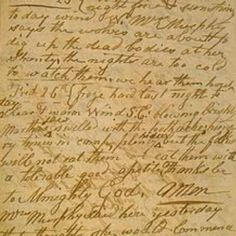 to day wind W. Mrs Murphy
says the wolves are about to
dig up the dead bodies at her
shanty, the nights are too cold
to watch them, we hear them howl
Frid 26 froze hard last night
day clear & warm Wind S.E. blowing briskly
Marthas jaw swelled with the toothache
hungry times in camp, but the folks
will not eat them we eat them with
a tolerable good apetite Thanks be
to Almighty God. Amen
Mrs Murphy said here yesterday
that thought she would commence